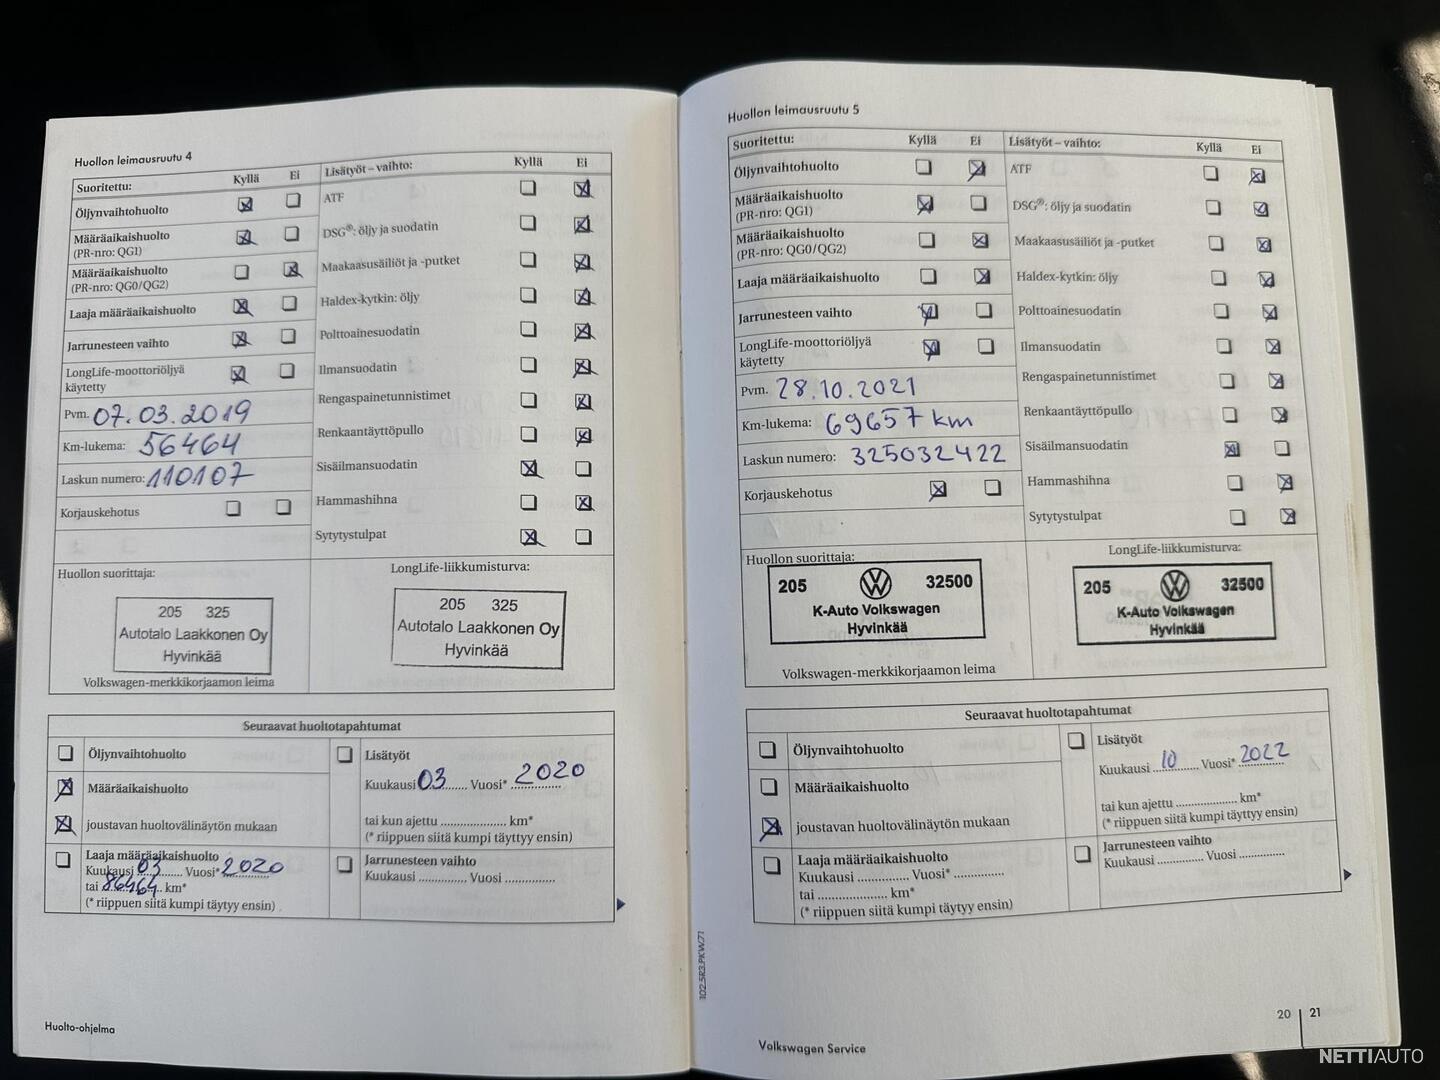 Huollon leimausruutu 4
Suoritettu: Kyllä Ei
Öljynvaihtohuolto
Määräaikaishuolto
(PR-nro: QG1)
Määräaikaishuolto
(PR-nro: QG0/QG2)
Laaja määräaikaishuolto
Jarrunesteen vaihto
LongLife-moottoriöljyä
käytetty
Pvm. 07.03.2019
Km-lukema: 56464
Laskun numero: 110107
Korjauskehotus
Lisätyöt – vaihto: Kyllä Ei
ATF
DSG®: öljy ja suodatin
Maakaasusäiliöt ja -putket
Haldex-kytkin: öljy
Polttoainesuodatin
Ilmansuodatin
Rengaspainetunnistimet
Renkaantäyttöpullo
Sisäilmansuodatin
Hammashihna
Sytytystulpat
Huollon suorittaja:
205 325
Autotalo Laakkonen Oy
Hyvinkää
Volkswagen-merkkikorjaamon leima
LongLife-liikkumisturva:
205 325
Autotalo Laakkonen Oy
Hyvinkää
Seuraavat huoltotapahtumat
Öljynvaihtohuolto
Määräaikaishuolto
joustavan huoltovälinäytön mukaan
Laaja määräaikaishuolto
Kuukausi 03 Vuosi* 2020
tai 86464 km*
(* riippuen siitä kumpi täytyy ensin)
Lisätyöt
Kuukausi 03 Vuosi* 2020
tai kun ajettu .................... km*
(* riippuen siitä kumpi täyttyy ensin)
Jarrunesteen vaihto
Kuukausi .............. Vuosi ...............
Huolto-ohjelma
Huollon leimausruutu 5
Suoritettu: Kyllä Ei
Öljynvaihtohuolto
Määräaikaishuolto
(PR-nro: QG1)
Määräaikaishuolto
(PR-nro: QG0/QG2)
Laaja määräaikaishuolto
Jarrunesteen vaihto
LongLife-moottoriöljyä
käytetty
Pvm. 28.10.2021
Km-lukema: 69657 km
Laskun numero: 325032422
Korjauskehotus
Lisätyöt – vaihto: Kyllä Ei
ATF
DSG®: öljy ja suodatin
Maakaasusäiliöt ja -putket
Haldex-kytkin: öljy
Polttoainesuodatin
Ilmansuodatin
Rengaspainetunnistimet
Renkaantäyttöpullo
Sisäilmansuodatin
Hammashihna
Sytytystulpat
Huollon suorittaja:
205 VW 32500
K-Auto Volkswagen
Hyvinkää
Volkswagen-merkkikorjaamon leima
LongLife-liikkumisturva:
205 VW 32500
K-Auto Volkswagen
Hyvinkää
Seuraavat huoltotapahtumat
Öljynvaihtohuolto
Määräaikaishuolto
joustavan huoltovälinäytön mukaan
Laaja määräaikaishuolto
Kuukausi .............. Vuosi* ..............
tai .................... km*
(* riippuen siitä kumpi täytyy ensin)
Lisätyöt
Kuukausi 10 Vuosi* 2022
tai kun ajettu ................... km*
(* riippuen siitä kumpi täyttyy ensin)
Jarrunesteen vaihto
Kuukausi ............. Vuosi .............
102.5R3.PKW.71
Volkswagen Service
20 21
NETTIAUTO